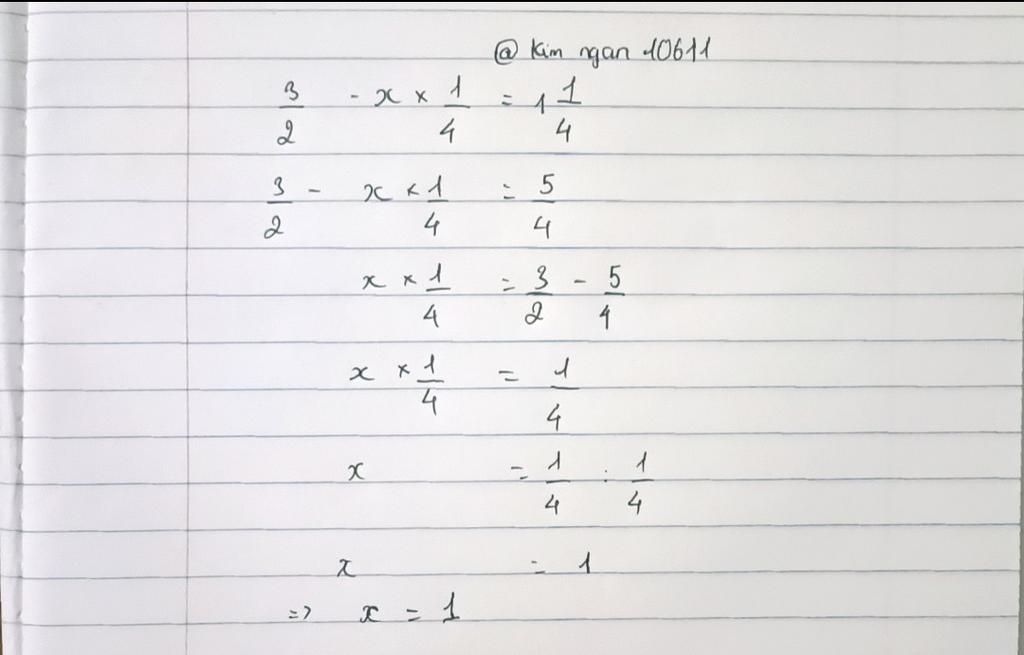 @ Kim ngan 10611
3/2 - x × 1/4 = 1 1/4
3/2 - x × 1/4 = 5/4
x × 1/4 = 3/2 - 5/4
x × 1/4 = 1/4
x = 1/4 : 1/4
x = 1
=> x = 1